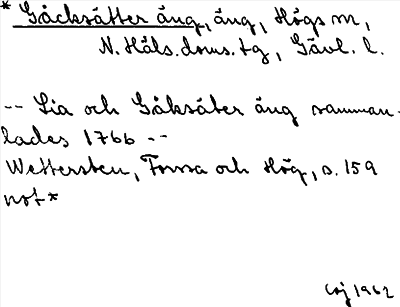 * Gåcksätter äng, äng, Högs sn,
N. Häls. doms. tg, Gävl. l.
-- Lia och Gåksäter äng samman-
lades 1766 --
Wettersten, Forsa och Hög, s. 159
not*
1962